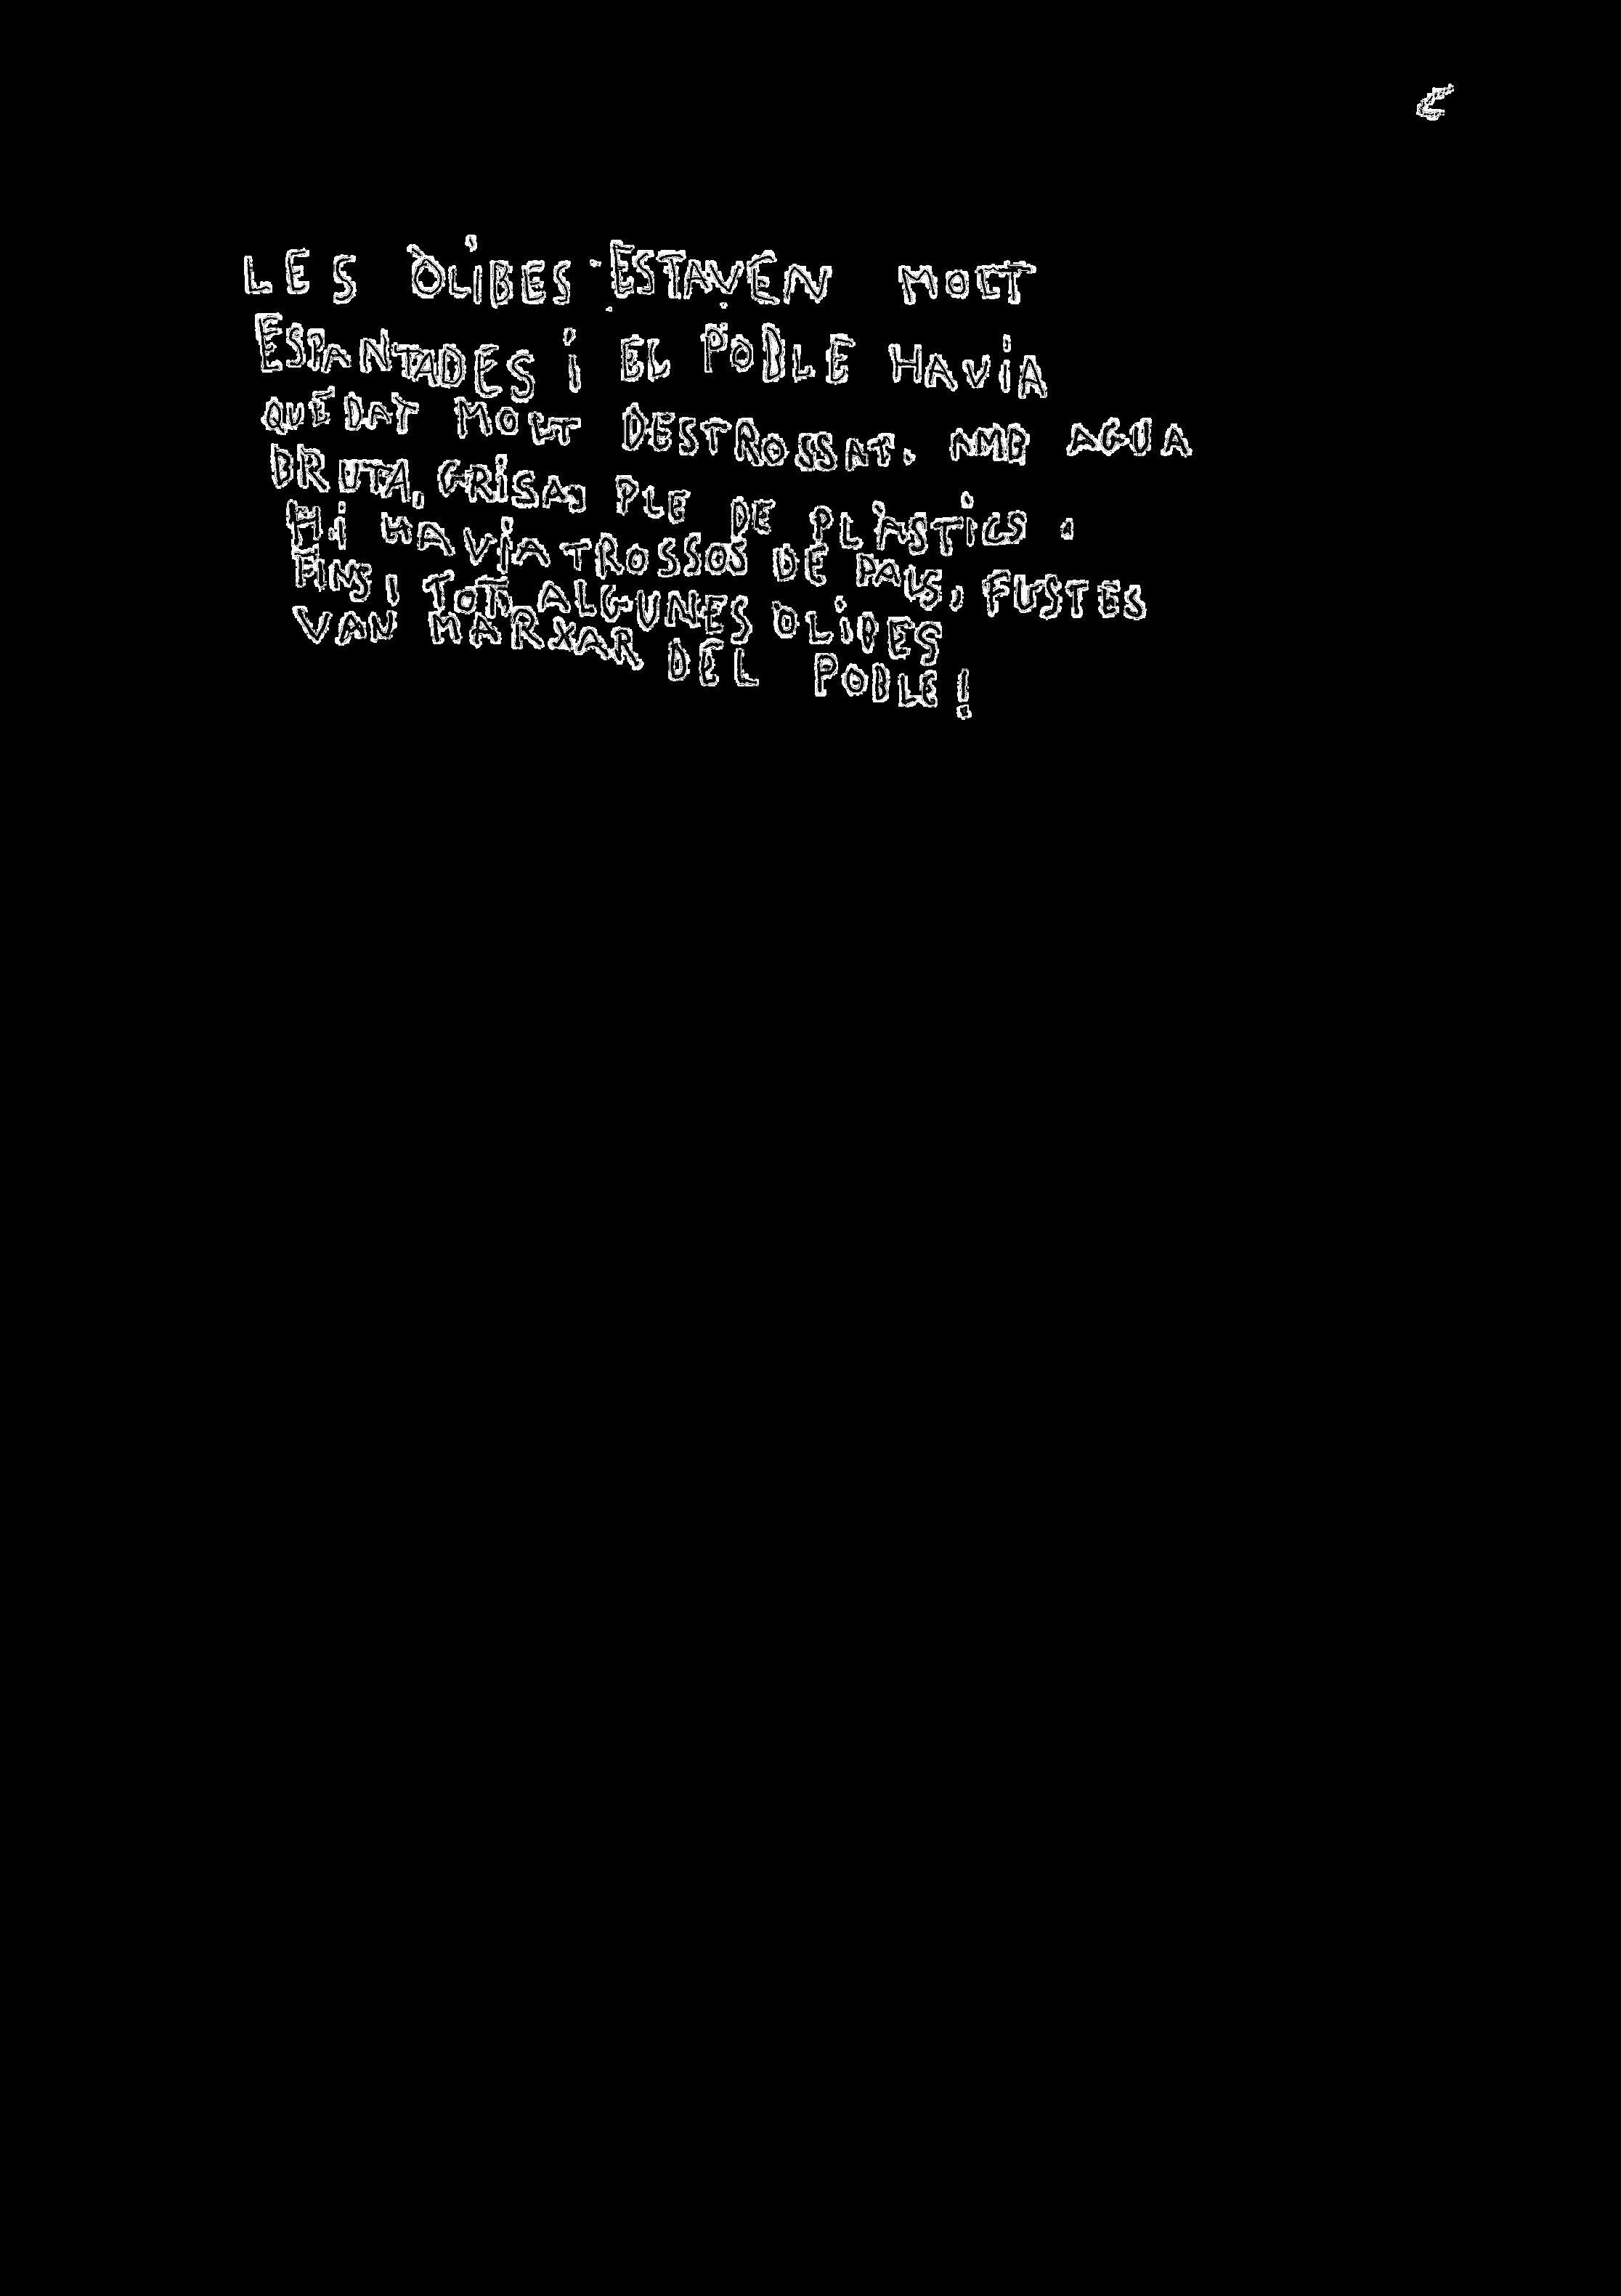 LES ÒLIBES ESTAVEN MOLT
ESPANTADES I EL POBLE HAVIA
QUEDAT MOLT DESTROSSAT. AMB AGUA
BRUTA, GRISA, PLE DE PLÀSTICS.
HI HAVIA TROSSOS DE PALS, FUSTES
FINS I TOT, ALGUNES ÒLIBES
VAN MARXAR DEL POBLE!